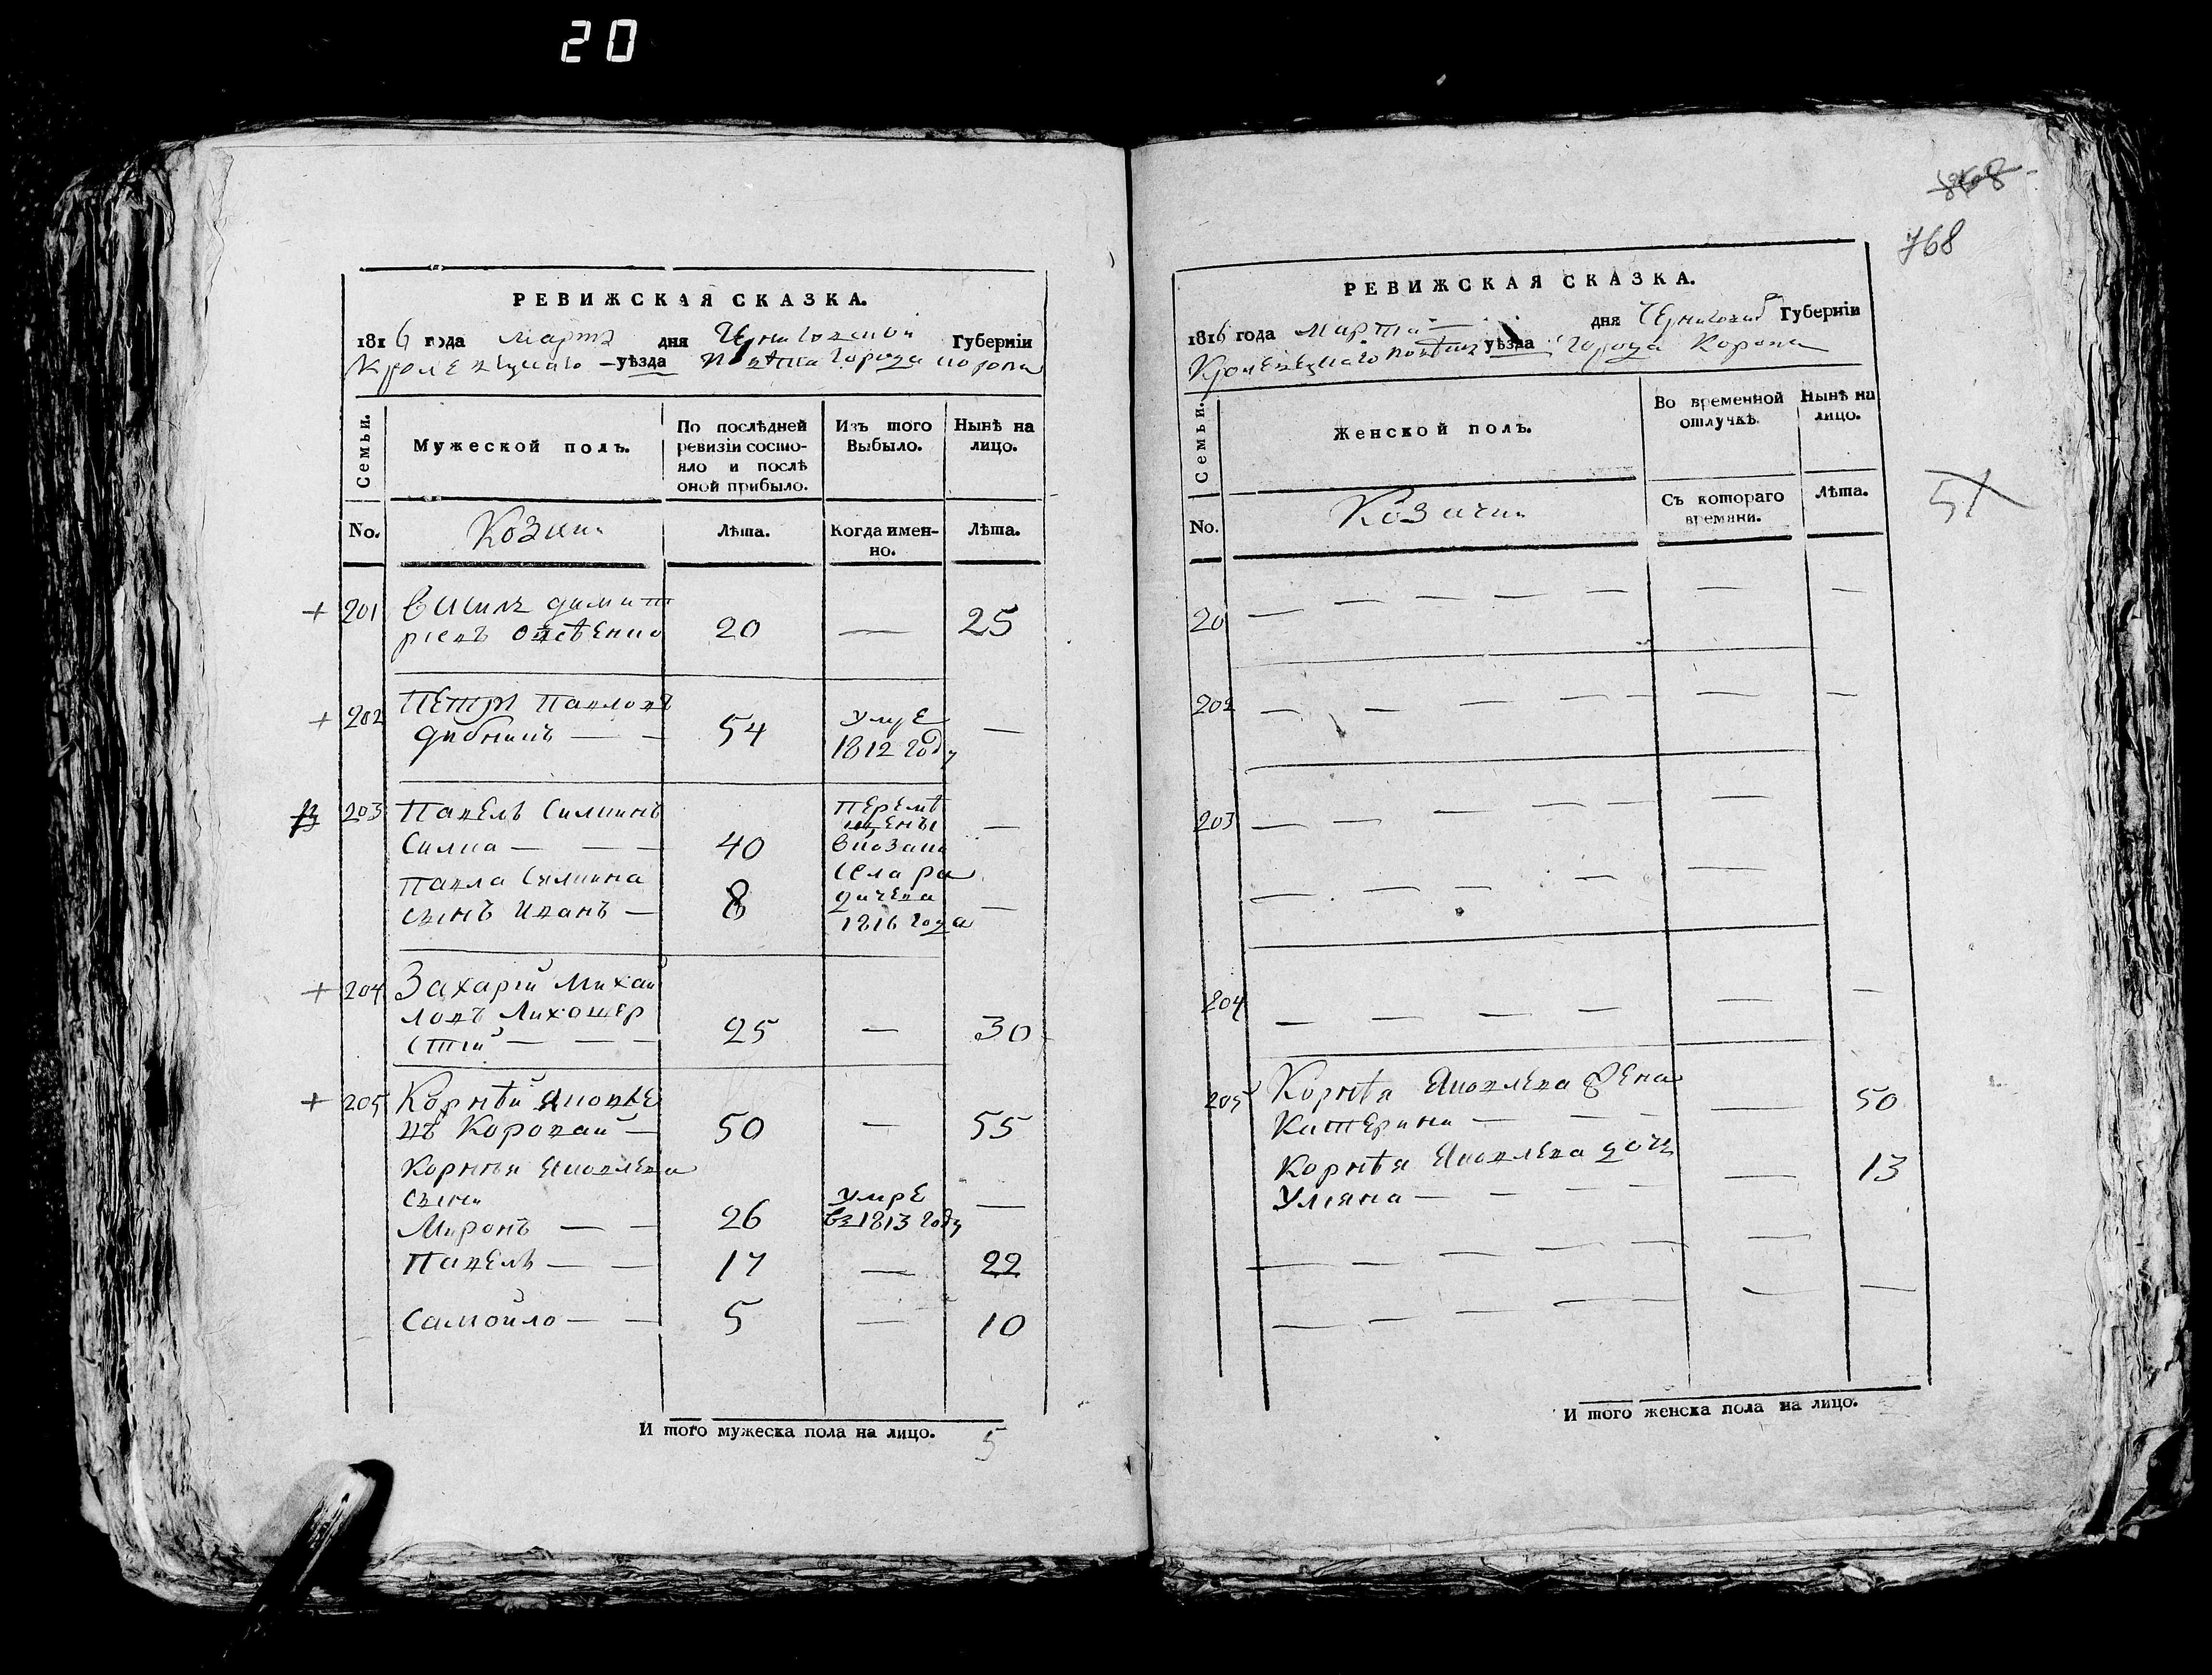 20
РЕВИЖСКАЯ СКАЗКА.
1816 года марта дня Черниговской Губерніи
Кролевецкаго уѣзда повѣта города коропа
Семьи.
Мужеской полъ.
По послѣдней ревизіи состояло и послѣ оной прибыло.
Изъ того Выбыло.
Нынѣ на лицо.
No.
Козаки
Лѣта.
Когда именно.
Лѣта.
+ 201 Василь димит
ріевъ 20 — 25
+ 202 Петръ Павловъ умре
54 — 1812 году
203 Павелъ Силкинъ перемѣ
щенъ
Силка — — — 40 вкозаки
Павла Силкина села ра
сынъ Иванъ — 8 дичева —
1816 года
+ 204 Захарій Михай
ловъ Лихошер
стій — — — 25 — 30
+ 205 Корнѣй Яковле
въ Коропай — 50 — 55
Корнѣя Яковлева
сыни умре —
Миронъ — — 26 въ 1813 году
Павелъ — — 17 — 22
Самойло — — 5 — 10
И того мужеска пола на лицо. 5
868
768
РЕВИЖСКАЯ СКАЗКА.
1816 года марта — дня Черниговской Губерніи
Кролевецкаго повѣта уѣзда города Коропа
Семьи.
Женской полъ.
Во временной отлучкѣ.
Нынѣ на лицо.
No.
Козачки
Съ котораго времяни.
Лѣта.
51
20 — — — — — — —
202 — — — — — — —
203 — — — — — —
— — — — —
204 — — — — — —
205 Корнѣя Яковлева жена
Катерина — — — — 50
Корнѣя Яковлева дочь
Уліяна — — — — — 13
— — — — — —
— — — — — —
И того женска пола на лицо.